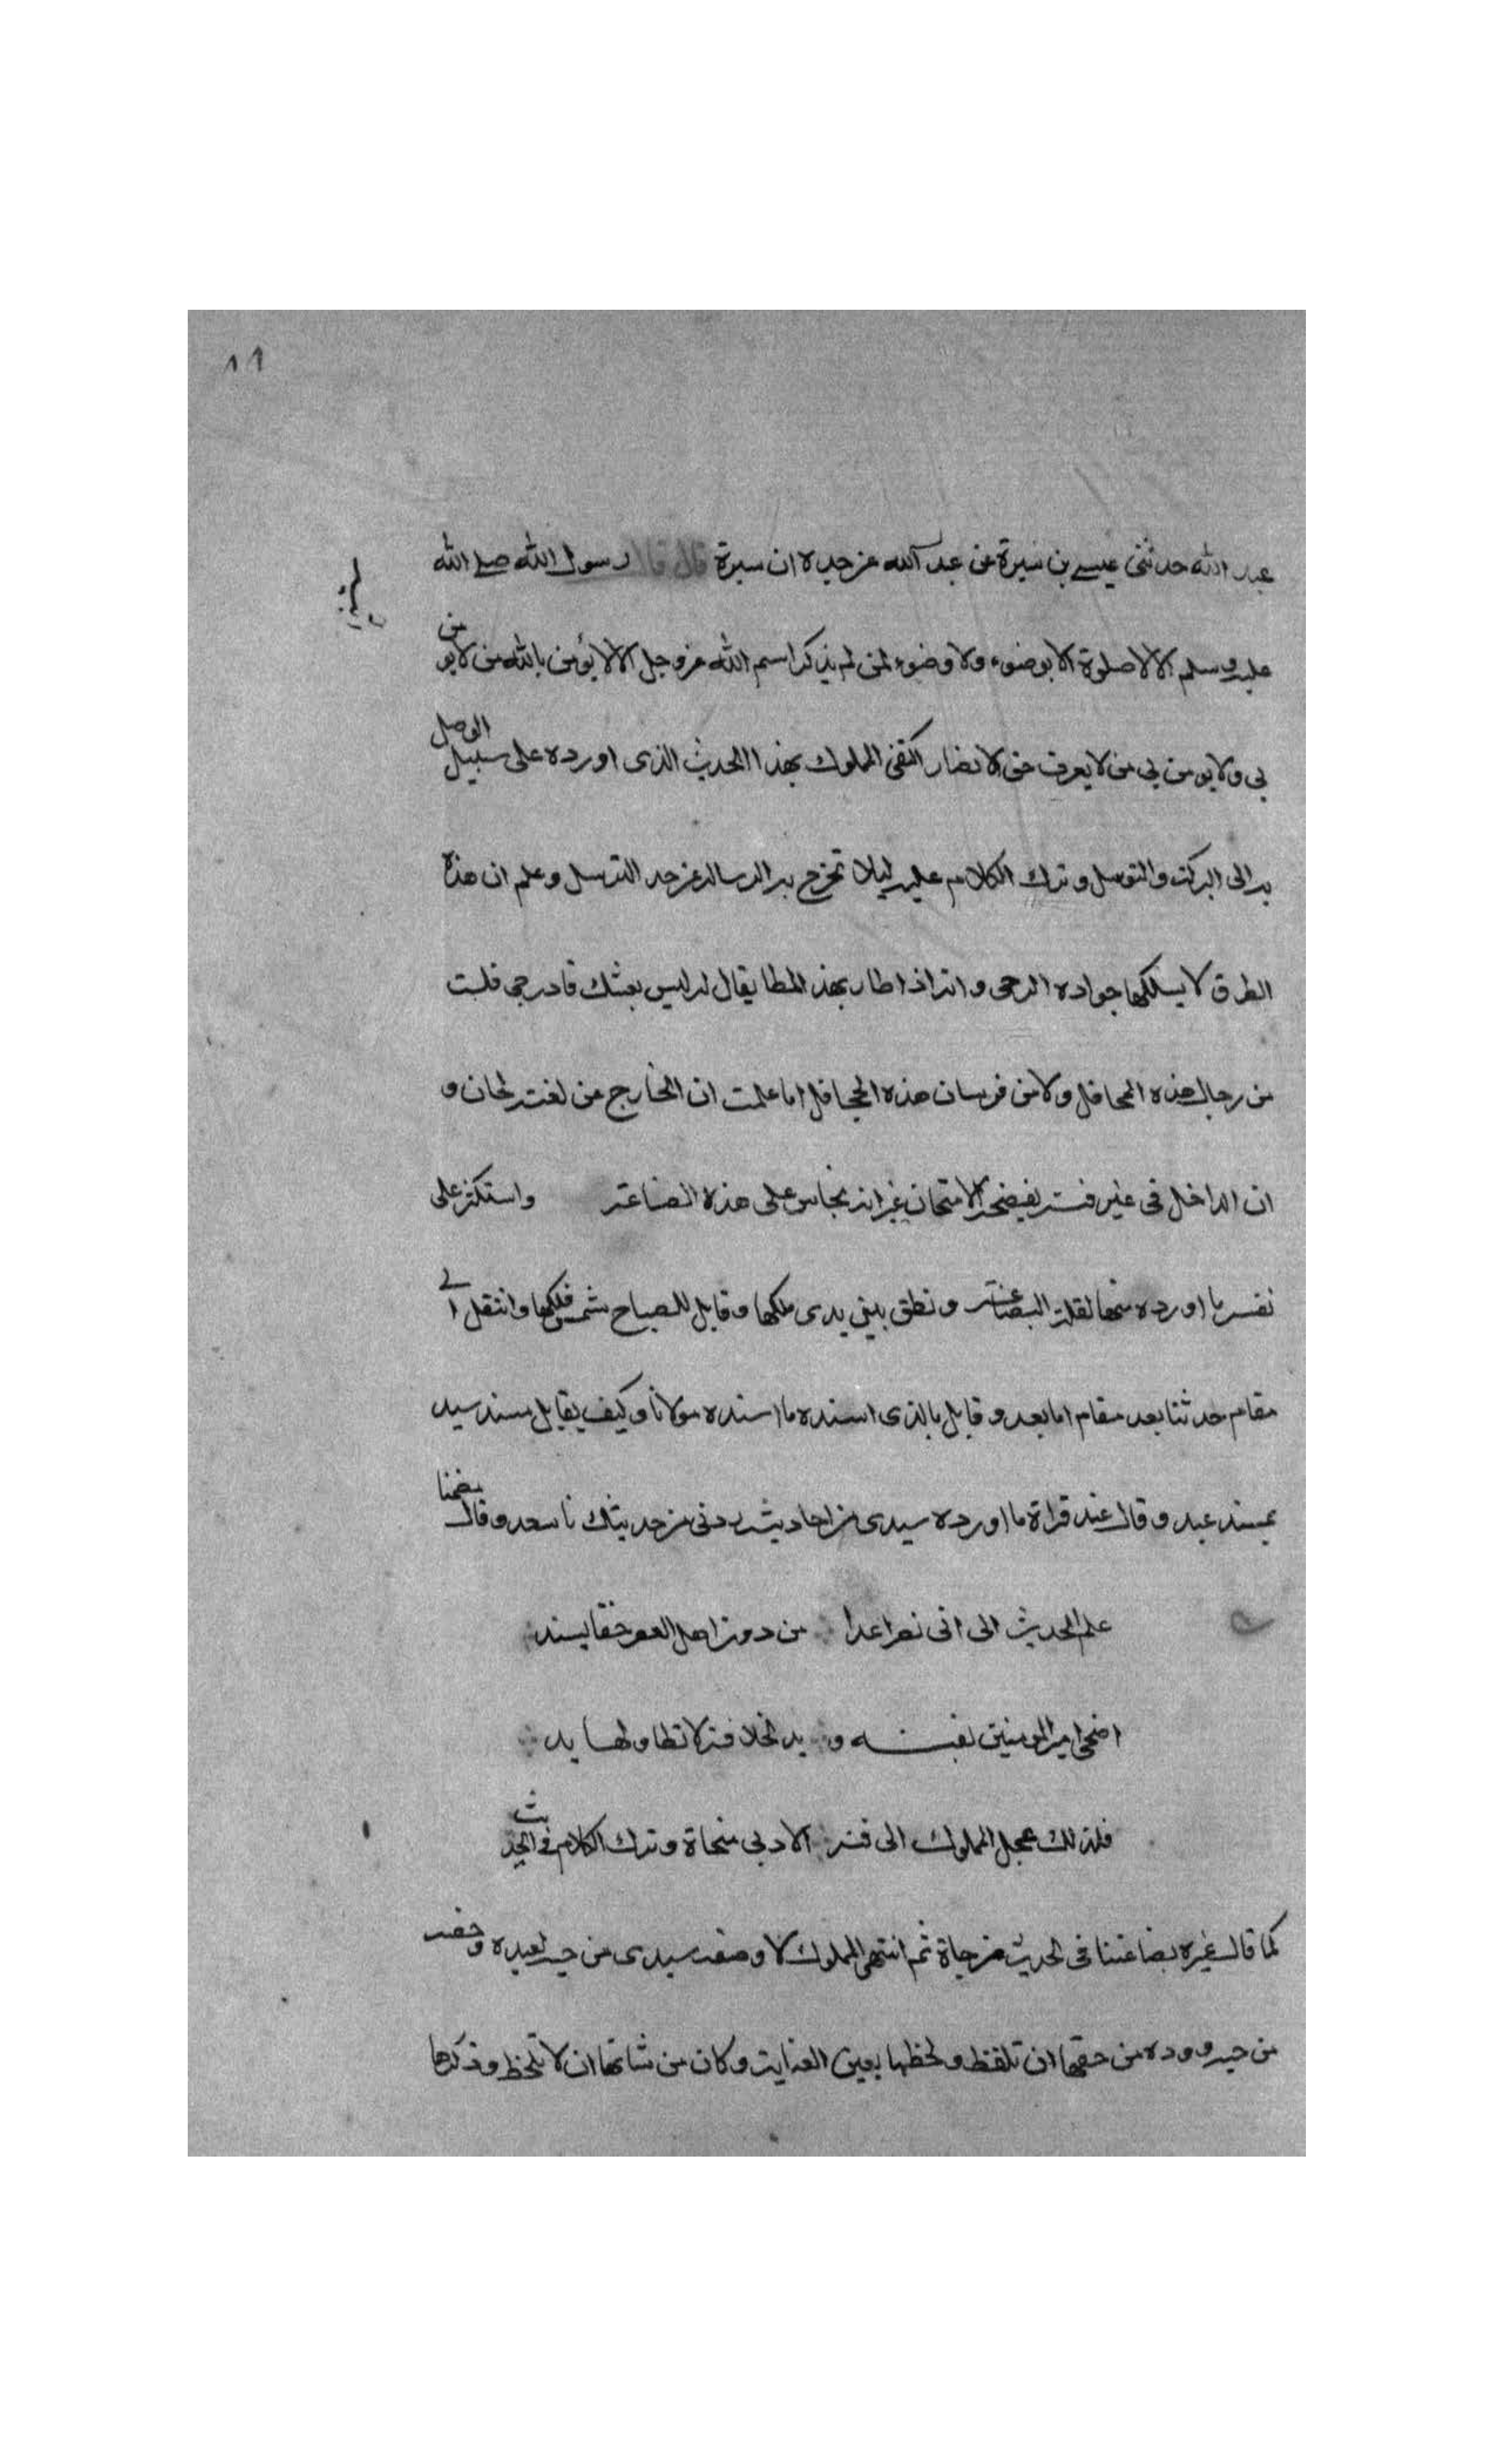 ١١
عبد الله حدثنى عيسى بن سبرة عن عبد الله عن جده ان سبرة قال قال رسول الله صلى الله
عليه وسلم الا لا صلوة الا بوضوء ولا وضوء لمن لم يذكر اسم الله عز وجل الا لا يؤمن بالله من لا يومن
بى ولا يومن بى من لا يعرف حق الانصار اكتفى المملوك بهذا الحديث الذى اورده على سبيل الوصل
به الى البركة والتوسل وترك الكلام عليه ليلا تخرج به الرسالة عن حد الترسل وعلم ان هذه
الطرق لا يسلكها جواده الرحى وانه اذا طار بهذ المطا يقال له ليس بعشك فادرجى فلست
من رجال هذه المحافل ولا من فرسان هذه الجحافل اما علمت ان الخارج عن لغته لحان و
ان الداخل فى غير فنه يفضحه الامتحان غير انه تجاسر على هذه الصناعة واستكثر على
نفسه ما اورده منها لقلة البضاعة ونطق بين يدى ملكها وقابل للصباح شمس فلكها وانتقل الى
مقام حدثنا بعد مقام اما بعد وقابل بالذى اسنده ما اسنده مولانا وكيف يقابل مسند سيد
بمسند عبد وقال عند قراة ما اورده سيدى من احاديثه زدنى من حديثك يا سعد وقال مضمنا
علم الحديث الى ابى نصر اعدا من دون اهل العصر حقا يسند
اضحى امير المومنين بفنه و يد لخلافة لا تطاولها يد
فلذلك عجل المملوك الى فنه الادبى منحاة وترك الكلام فى الحديث
كما قال غيره بضاعتنا فى الحديث مزجاة ثم انتهى المملوك لا وصفه سيدى من حبه لعبده و
من حبه ووده من حقها ان تلفظ ولحظها بعين العناية وكان من شانها ان لا تلحظ وذكرها